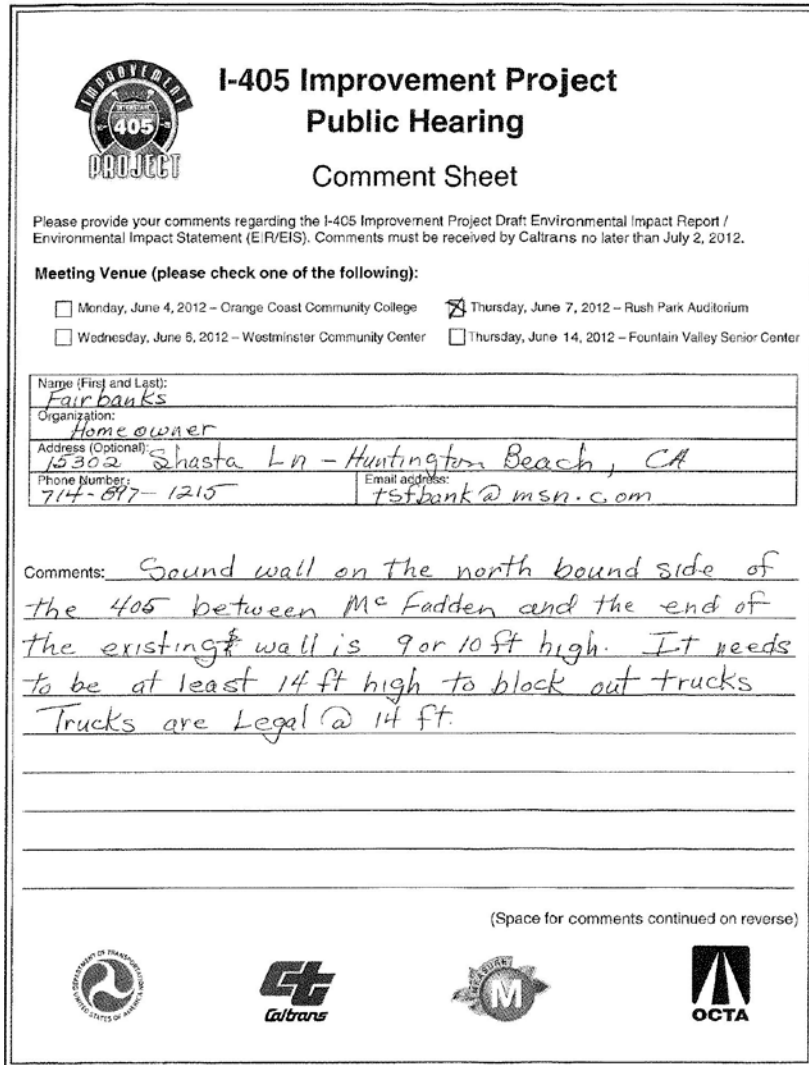 IMPROVEMENT
INTERSTATE
405
PROJECT
I-405 Improvement Project
Public Hearing
Comment Sheet
Please provide your comments regarding the I-405 Improvement Project Draft Environmental Impact Report /
Environmental Impact Statement (EIR/EIS). Comments must be received by Caltrans no later than July 2, 2012.
Meeting Venue (please check one of the following):
Monday, June 4, 2012 – Orange Coast Community College
Thursday, June 7, 2012 – Rush Park Auditorium
Wednesday, June 6, 2012 – Westminster Community Center
Thursday, June 14, 2012 – Fountain Valley Senior Center
Name (First and Last):
Fairbanks
Organization:
Homeowner
Address (Optional):
15302 Shasta Ln - Huntington Beach, CA
Phone Number:
714-897-1215
Email address:
tsfbank@msn.com
Comments: Sound wall on the north bound side of
the 405 between McFadden and the end of
the existing wall is 9 or 10 ft high. It needs
to be at least 14 ft high to block out trucks
Trucks are Legal @ 14 ft.
(Space for comments continued on reverse)
DEPARTMENT OF TRANSPORTATION
UNITED STATES OF AMERICA
Caltrans
MEASURE
M
OCTA